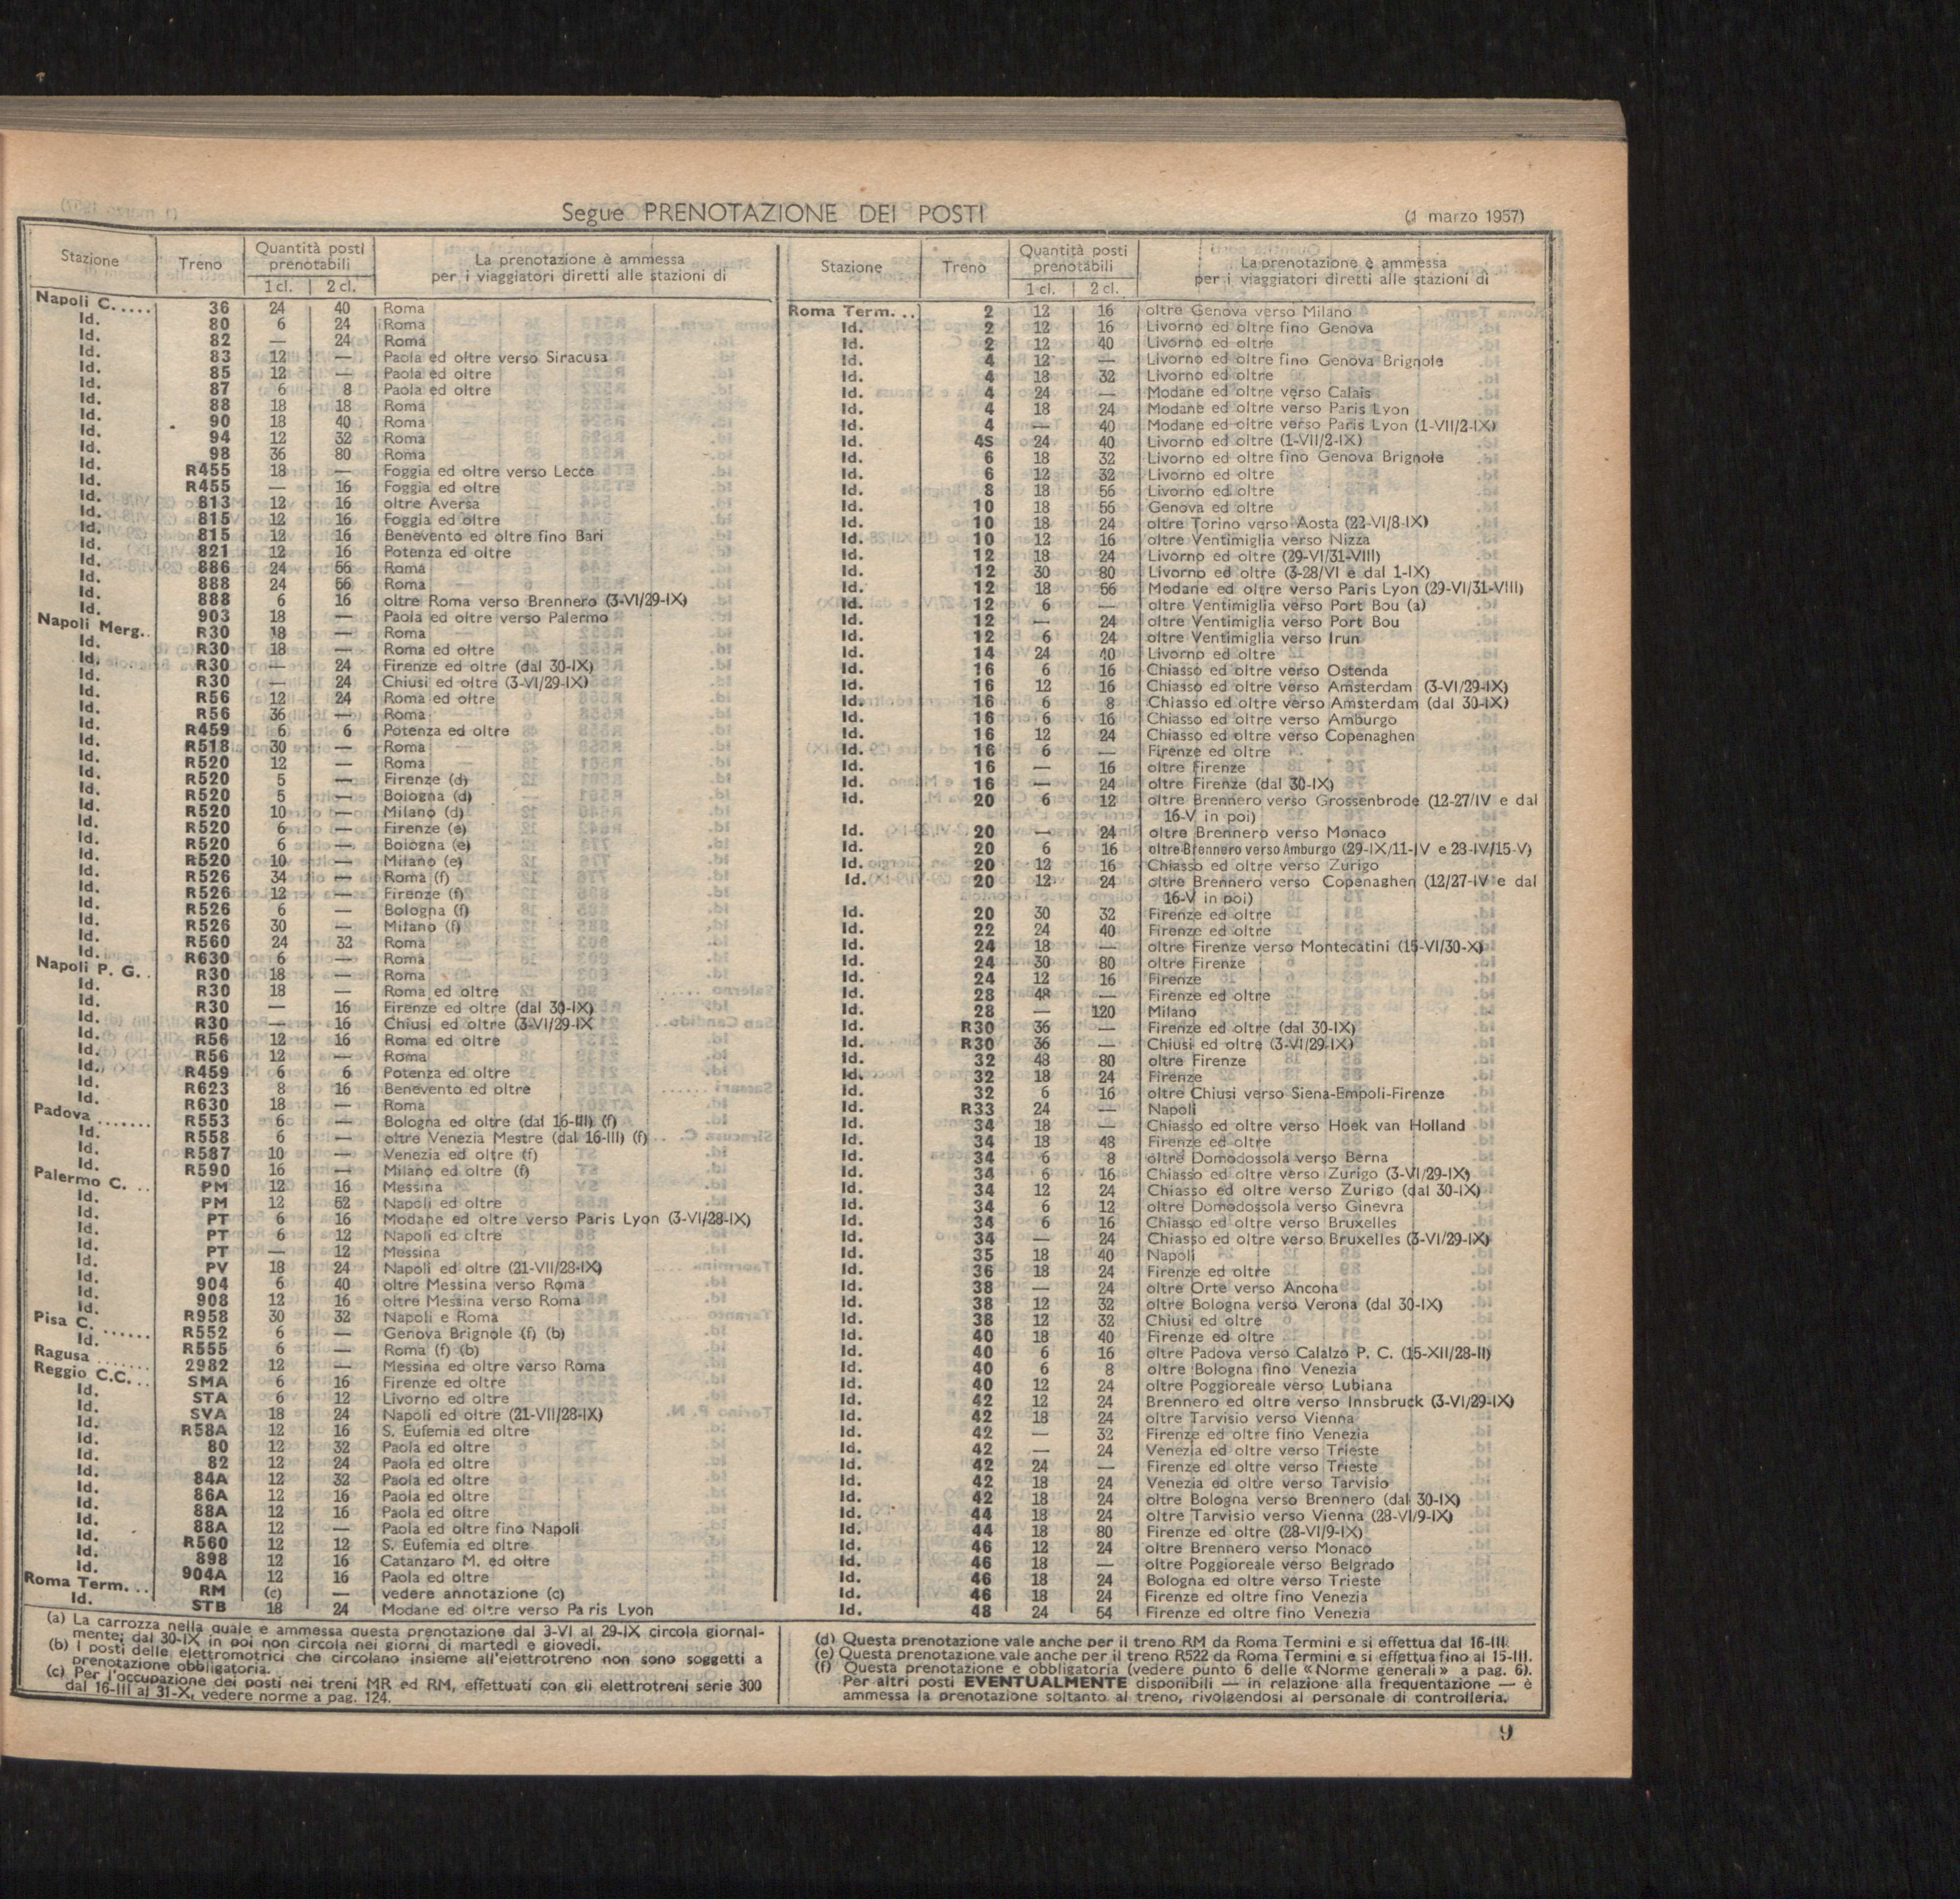 Segue PRENOTAZIONE DEI POSTI (1 marzo 1957)
Stazione Treno Quantità posti prenotabili 1 cl. 2 cl. La prenotazione è ammessa per i viaggiatori diretti alle stazioni di
Napoli C. .... 36 24 40 Roma
Id. 80 6 24 Roma
Id. 82 — 24 Roma
Id. 83 12 — Paola ed oltre verso Siracusa
Id. 85 12 — Paola ed oltre
Id. 87 6 8 Paola ed oltre
Id. 88 18 18 Roma
Id. 90 18 40 Roma
Id. 94 12 32 Roma
Id. 98 36 80 Roma
Id. R455 18 — Foggia ed oltre verso Lecce
Id. R455 — 16 Foggia ed oltre
Id. 813 12 16 oltre Aversa
Id. 815 12 16 Foggia ed oltre
Id. 815 12 16 Benevento ed oltre fino Bari
Id. 821 12 16 Potenza ed oltre
Id. 886 24 56 Roma
Id. 888 24 56 Roma
Id. 888 6 16 oltre Roma verso Brennero (3-VI/29-IX)
Id. 903 18 — Paola ed oltre verso Palermo
Napoli Merg.. R30 18 — Roma
Id. R30 18 — Roma ed oltre
Id. R30 — 24 Firenze ed oltre (dal 30-IX)
Id. R30 — 24 Chiusi ed oltre (3-VI/29-IX)
Id. R56 12 24 Roma ed oltre
Id. R56 36 — Roma
Id. R459 6 6 Potenza ed oltre
Id. R518 30 — Roma
Id. R520 12 — Roma
Id. R520 5 — Firenze (d)
Id. R520 5 — Bologna (d)
Id. R520 10 — Milano (d)
Id. R520 6 — Firenze (e)
Id. R520 6 — Bologna (e)
Id. R520 10 — Milano (e)
Id. R526 34 — Roma (f)
Id. R526 12 — Firenze (f)
Id. R526 6 — Bologna (f)
Id. R526 30 — Milano (f)
Id. R560 24 32 Roma
Id. R630 6 — Roma
Napoli P. G. . R30 18 — Roma
Id. R30 18 — Roma ed oltre
Id. R30 — 16 Firenze ed oltre (dal 30-IX)
Id. R30 — 16 Chiusi ed oltre (3-VI/29-IX
Id. R56 12 16 Roma ed oltre
Id. R56 12 — Roma
Id. R459 6 6 Potenza ed oltre
Id. R623 8 16 Benevento ed oltre
Id. R630 18 — Roma
Padova ....... R553 6 — Bologna ed oltre (dal 16-III) (f)
Id. R558 6 — oltre Venezia Mestre (dal 16-III) (f)
Id. R587 10 — Venezia ed oltre (f)
Id. R590 16 — Milano ed oltre (f)
Palermo C. .. PM 12 16 Messina
Id. PM 12 52 Napoli ed oltre
Id. PT 6 16 Modane ed oltre verso Paris Lyon (3-VI/28-IX)
Id. PT 6 12 Napoli ed oltre
Id. PT — 12 Messina
Id. PV 18 24 Napoli ed oltre (21-VII/28-IX)
Id. 904 6 40 oltre Messina verso Roma
Id. 908 12 16 oltre Messina verso Roma
Id. R958 30 32 Napoli e Roma
Pisa C. ...... R552 6 — Genova Brignole (f) (b)
Id. R555 6 — Roma (f) (b)
Ragusa ....... 2982 12 — Messina ed oltre verso Roma
Reggio C.C. .. SMA 6 16 Firenze ed oltre
Id. STA 6 12 Livorno ed oltre
Id. SVA 18 24 Napoli ed oltre (21-VII/28-IX)
Id. R58A 12 16 S. Eufemia ed oltre
Id. 80 12 32 Paola ed oltre
Id. 82 12 24 Paola ed oltre
Id. 84A 12 32 Paola ed oltre
Id. 86A 12 16 Paola ed oltre
Id. 88A 12 16 Paola ed oltre
Id. 88A 12 — Paola ed oltre fino Napoli
Id. R560 12 12 S. Eufemia ed oltre
Id. 898 12 16 Catanzaro M. ed oltre
Id. 904A 12 16 Paola ed oltre
Roma Term. .. RM (c) — vedere annotazione (c)
Id. STB 18 24 Modane ed oltre verso Paris Lyon
(a) La carrozza nella quale e ammessa questa prenotazione dal 3-VI al 29-IX circola giornal-
mente; dal 30-IX in poi non circola nei giorni di martedì e giovedì.
(b) I posti delle elettromotrici che circolano insieme all'elettrotreno non sono soggetti a
prenotazione obbligatoria.
(c) Per l'occupazione dei posti nei treni MR ed RM, effettuati con gli elettrotreni serie 300
dal 16-III al 31-X, vedere norme a pag. 124.
Stazione Treno Quantità posti prenotabili 1 cl. 2 cl. La prenotazione è ammessa per i viaggiatori diretti alle stazioni di
Roma Term. .. 2 12 16 oltre Genova verso Milano
Id. 2 12 16 Livorno ed oltre fino Genova
Id. 2 12 40 Livorno ed oltre
Id. 4 12 — Livorno ed oltre fino Genova Brignole
Id. 4 18 32 Livorno ed oltre
Id. 4 24 — Modane ed oltre verso Calais
Id. 4 18 24 Modane ed oltre verso Paris Lyon
Id. 4 — 40 Modane ed oltre verso Paris Lyon (1-VII/2-IX)
Id. 4S 24 40 Livorno ed oltre (1-VII/2-IX)
Id. 6 18 32 Livorno ed oltre fino Genova Brignole
Id. 6 12 32 Livorno ed oltre
Id. 8 18 56 Livorno ed oltre
Id. 10 18 56 Genova ed oltre
Id. 10 18 24 oltre Torino verso Aosta (22-VI/8-IX)
Id. 10 12 16 oltre Ventimiglia verso Nizza
Id. 12 18 24 Livorno ed oltre (29-VI/31-VIII)
Id. 12 30 80 Livorno ed oltre (3-28/VI e dal 1-IX)
Id. 12 18 56 Modane ed oltre verso Paris Lyon (29-VI/31-VIII)
Id. 12 6 — oltre Ventimiglia verso Port Bou (a)
Id. 12 — 24 oltre Ventimiglia verso Port Bou
Id. 12 6 24 oltre Ventimiglia verso Irun
Id. 14 24 40 Livorno ed oltre
Id. 16 6 16 Chiasso ed oltre verso Ostenda
Id. 16 12 16 Chiasso ed oltre verso Amsterdam (3-VI/29-IX)
Id. 16 6 8 Chiasso ed oltre verso Amsterdam (dal 30-IX)
Id. 16 6 16 Chiasso ed oltre verso Amburgo
Id. 16 12 24 Chiasso ed oltre verso Copenaghen
Id. 16 6 — Firenze ed oltre
Id. 16 — 16 oltre Firenze
Id. 16 — 24 oltre Firenze (dal 30-IX)
Id. 20 6 12 oltre Brennero verso Grossenbrode (12-27/IV e dal
16-V in poi)
Id. 20 — 24 oltre Brennero verso Monaco
Id. 20 6 16 oltre Brennero verso Amburgo (29-IX/11-IV e 28-IV/15-V)
Id. 20 12 16 Chiasso ed oltre verso Zurigo
Id. 20 12 24 oltre Brennero verso Copenaghen (12/27-IV e dal
16-V in poi)
Id. 20 30 32 Firenze ed oltre
Id. 22 24 40 Firenze ed oltre
Id. 24 18 — oltre Firenze verso Montecatini (15-VI/30-X)
Id. 24 30 80 oltre Firenze
Id. 24 12 16 Firenze
Id. 28 48 — Firenze ed oltre
Id. 28 — 120 Milano
Id. R30 36 — Firenze ed oltre (dal 30-IX)
Id. R30 36 — Chiusi ed oltre (3-VI/29-IX)
Id. 32 48 80 oltre Firenze
Id. 32 18 24 Firenze
Id. 32 6 16 oltre Chiusi verso Siena-Empoli-Firenze
Id. R33 24 — Napoli
Id. 34 18 — Chiasso ed oltre verso Hoek van Holland
Id. 34 18 48 Firenze ed oltre
Id. 34 6 8 oltre Domodossola verso Berna
Id. 34 6 16 Chiasso ed oltre verso Zurigo (3-VI/29-IX)
Id. 34 12 24 Chiasso ed oltre verso Zurigo (dal 30-IX)
Id. 34 6 12 oltre Domodossola verso Ginevra
Id. 34 6 16 Chiasso ed oltre verso Bruxelles
Id. 34 — 24 Chiasso ed oltre verso Bruxelles (3-VI/29-IX)
Id. 35 18 40 Napoli
Id. 36 18 24 Firenze ed oltre
Id. 38 — 24 oltre Orte verso Ancona
Id. 38 12 32 oltre Bologna verso Verona (dal 30-IX)
Id. 38 12 32 Chiusi ed oltre
Id. 40 18 40 Firenze ed oltre
Id. 40 6 16 oltre Padova verso Calalzo P. C. (15-XII/28-II)
Id. 40 6 8 oltre Bologna fino Venezia
Id. 40 12 24 oltre Poggioreale verso Lubiana
Id. 42 12 24 Brennero ed oltre verso Innsbruck (3-VI/29-IX)
Id. 42 18 24 oltre Tarvisio verso Vienna
Id. 42 — 32 Firenze ed oltre fino Venezia
Id. 42 — 24 Venezia ed oltre verso Trieste
Id. 42 24 — Firenze ed oltre verso Trieste
Id. 42 18 24 Venezia ed oltre verso Tarvisio
Id. 42 18 24 oltre Bologna verso Brennero (dal 30-IX)
Id. 44 18 24 oltre Tarvisio verso Vienna (28-VI/9-IX)
Id. 44 18 80 Firenze ed oltre (28-VI/9-IX)
Id. 46 12 24 oltre Brennero verso Monaco
Id. 46 18 — oltre Poggioreale verso Belgrado
Id. 46 18 24 Bologna ed oltre verso Trieste
Id. 46 18 24 Firenze ed oltre fino Venezia
Id. 48 24 54 Firenze ed oltre fino Venezia
(d) Questa prenotazione vale anche per il treno RM da Roma Termini e si effettua dal 16-III.
(e) Questa prenotazione vale anche per il treno R522 da Roma Termini e si effettua fino al 15-III.
(f) Questa prenotazione e obbligatoria (vedere punto 6 delle «Norme generali» a pag. 6).
Per altri posti EVENTUALMENTE disponibili — in relazione alla frequentazione — è
ammessa la prenotazione soltanto al treno, rivolgendosi al personale di controlleria.
9